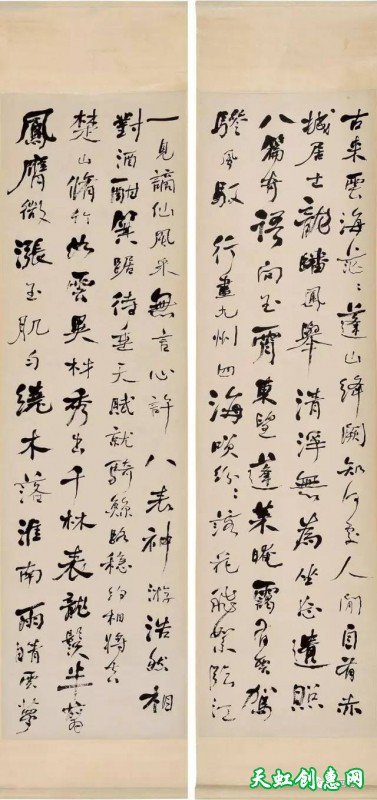 古來雲海茫〻蓬山絳闕知何處人間自有赤
城居士龍蟠鳳舉清淨無為坐忘遺照
八篇奇語向玉霄東望蓬萊晻靄有雲駕
驂風馭行盡九州四海笑紛〻落花飛絮臨江
一見謫仙風采無言心許八表神游浩然相
對酒酣箕踞待垂天賦就騎鯨路穩約相將去
楚山脩竹如雲異材秀出千林表龍鬚半翦
鳳膺微漲玉肌勻繞木落淮南雨晴雲夢
天虹创意网